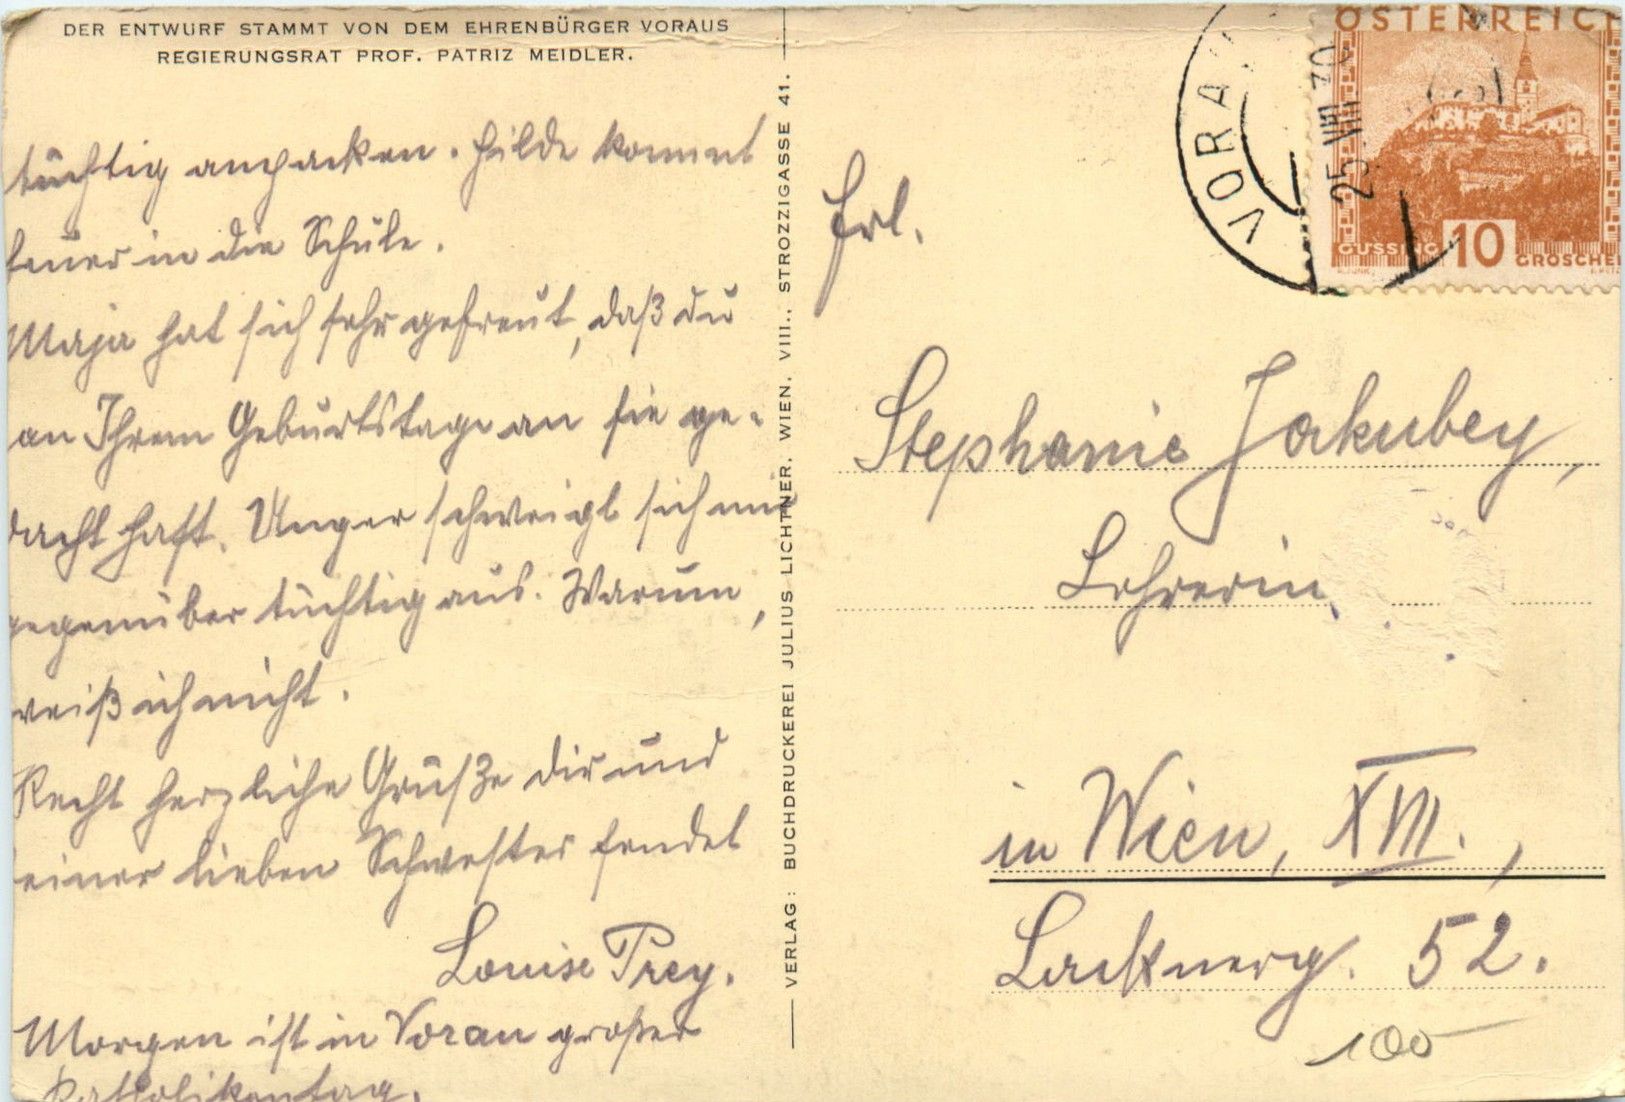 DER ENTWURF STAMMT VON DEM EHRENBÜRGER VORAUS
REGIERUNGSRAT PROF. PATRIZ MEIDLER.
tüchtig anpacken. Hilde kommt
heuer in die Schule.
Maja hat sich sehr gefreut, daß du
an Ihrem Geburtstage an sie ge-
dacht hast. Unger schweigt sich mir
gegenüber tüchtig aus. Warum,
weiß ich nicht.
Recht herzliche Grüße dir und
deiner lieben Schwester sendet
Louise Prey.
Morgen ist in Vorau großer
Katholikentag.
VERLAG: BUCHDRUCKEREI JULIUS LICHTNER, WIEN, VIII., STROZZIGASSE 41.
VORA
25.VIII 30
ÖSTERREICH
GÜSSING 10 GROSCHEN
Frl.
Stephanie Jakubey,
Lehrerin,
in Wien, XVII.,
Lacknerg. 52.
100